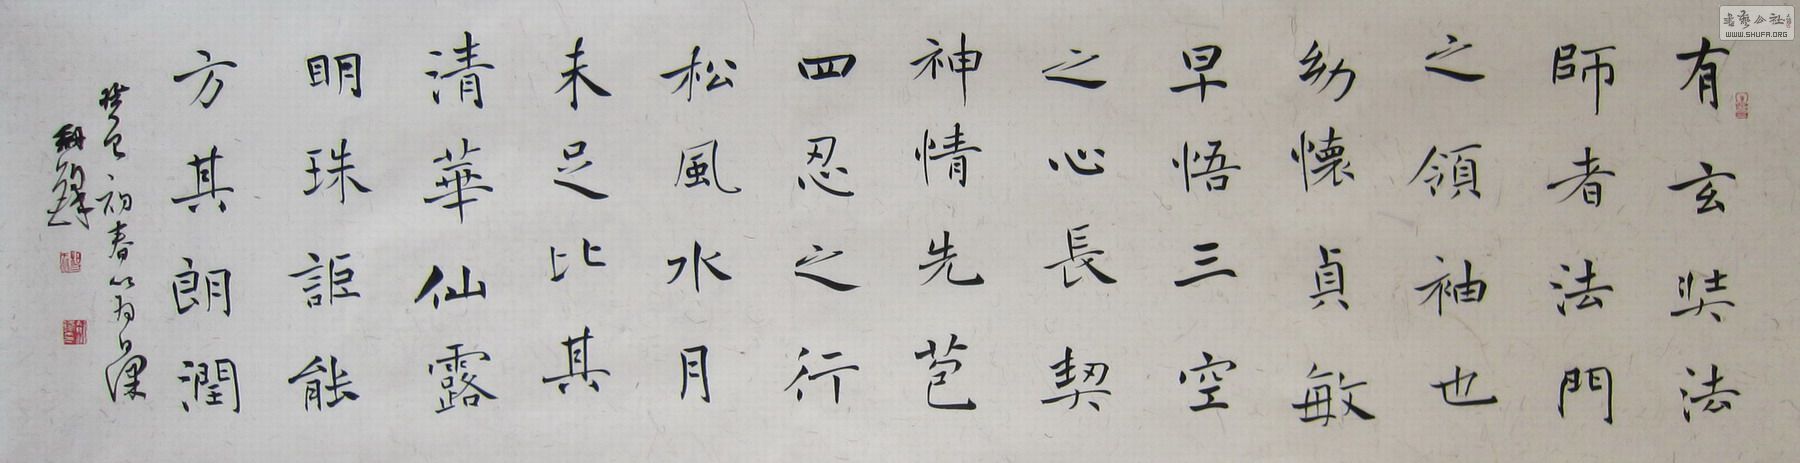 有玄奘法
師者法門
之領袖也
幼懷貞敏
早悟三空
之心長契
神情先苞
四忍之行
松風水月
未足比其
清華仙露
明珠詎能
方其朗潤
癸巳初春
WWW.SHUFA.ORG